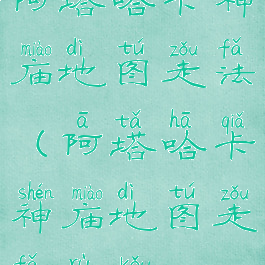 阿塔哈卡神
miào dì tú zǒu fǎ
庙地图走法
ā tǎ hā qiǎ
(阿塔哈卡
shén miào dì tú zǒu
神庙地图走
fǎ rù kǒu